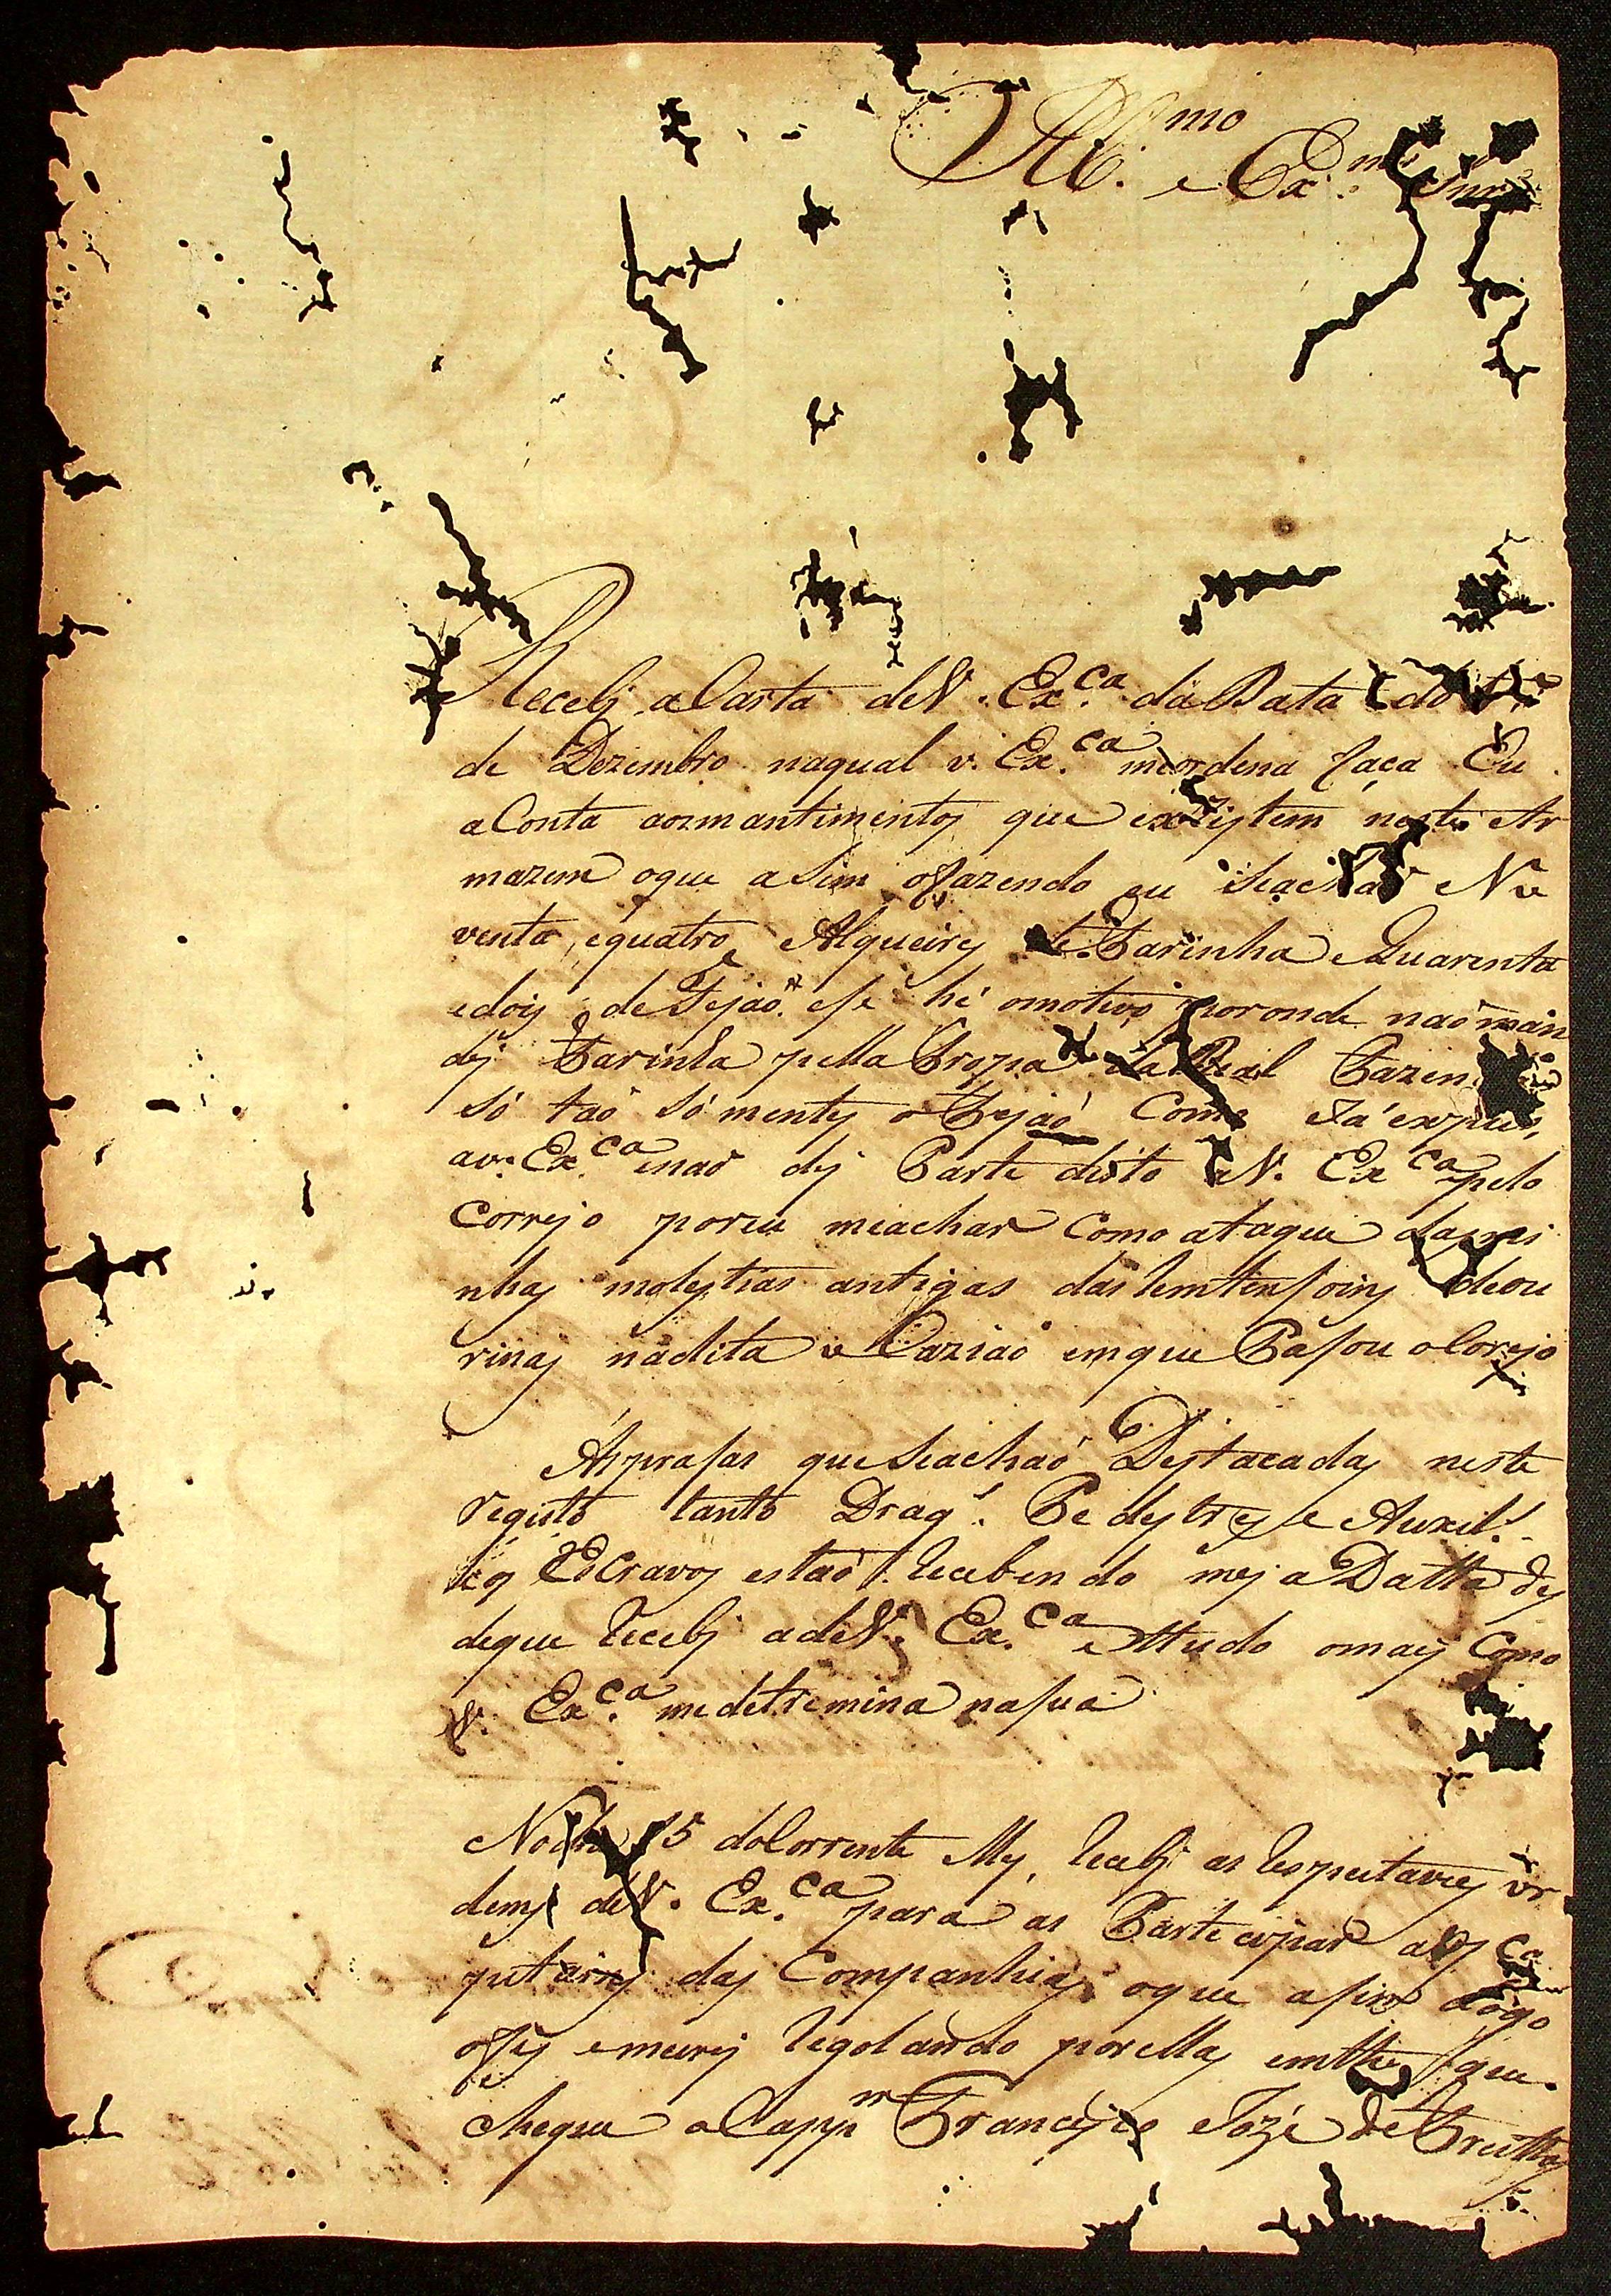 Ill.mo e Ex.mo Snr.
Recebj a Carta de V. Ex.ca da Data do
de Dezembro naqual v. Ex.ca meordena faça Eu
aConta aosmantimentos que exzistem neste Ar
mazem oque asim ofazendo eu seachar No
venta, equatro Alqueires de Farinha e Quarenta
edois de Fejaõ. esse hé omotivo poronde naõ man
dej Farinha pella Tropa da Real Fazen
só taõ sómentes o Fejaõ Como Já expus,
av. Ex.ca enaõ dej Parte disto a V. Ex.ca pelo
Correjo poreu meachar Como ataque dasmi
nhas molestias antigas das lemtensoins deou
rinas nadita o Caziaõ emque Pasou oCorejo
Asprasas que seachaõ Destacadas neste
registo tanto Drag.s Pedestres e Auxil.s
eos Escravos estaõ recebendo meja Datta des
deque recebj adeV. Ex.ca ettudo omais Como
V. Ex.ca medetremina nasua
Nodia 15 doCorrente Mes, recebj as respeitaveis or
dems deV. Ex.ca para as Partecipar aos Ca
pitains das Companhias oque asim logo
ofis emeirej regolando porellas emthe que
chegue oCapp.m Francisco Jozé de Freittas